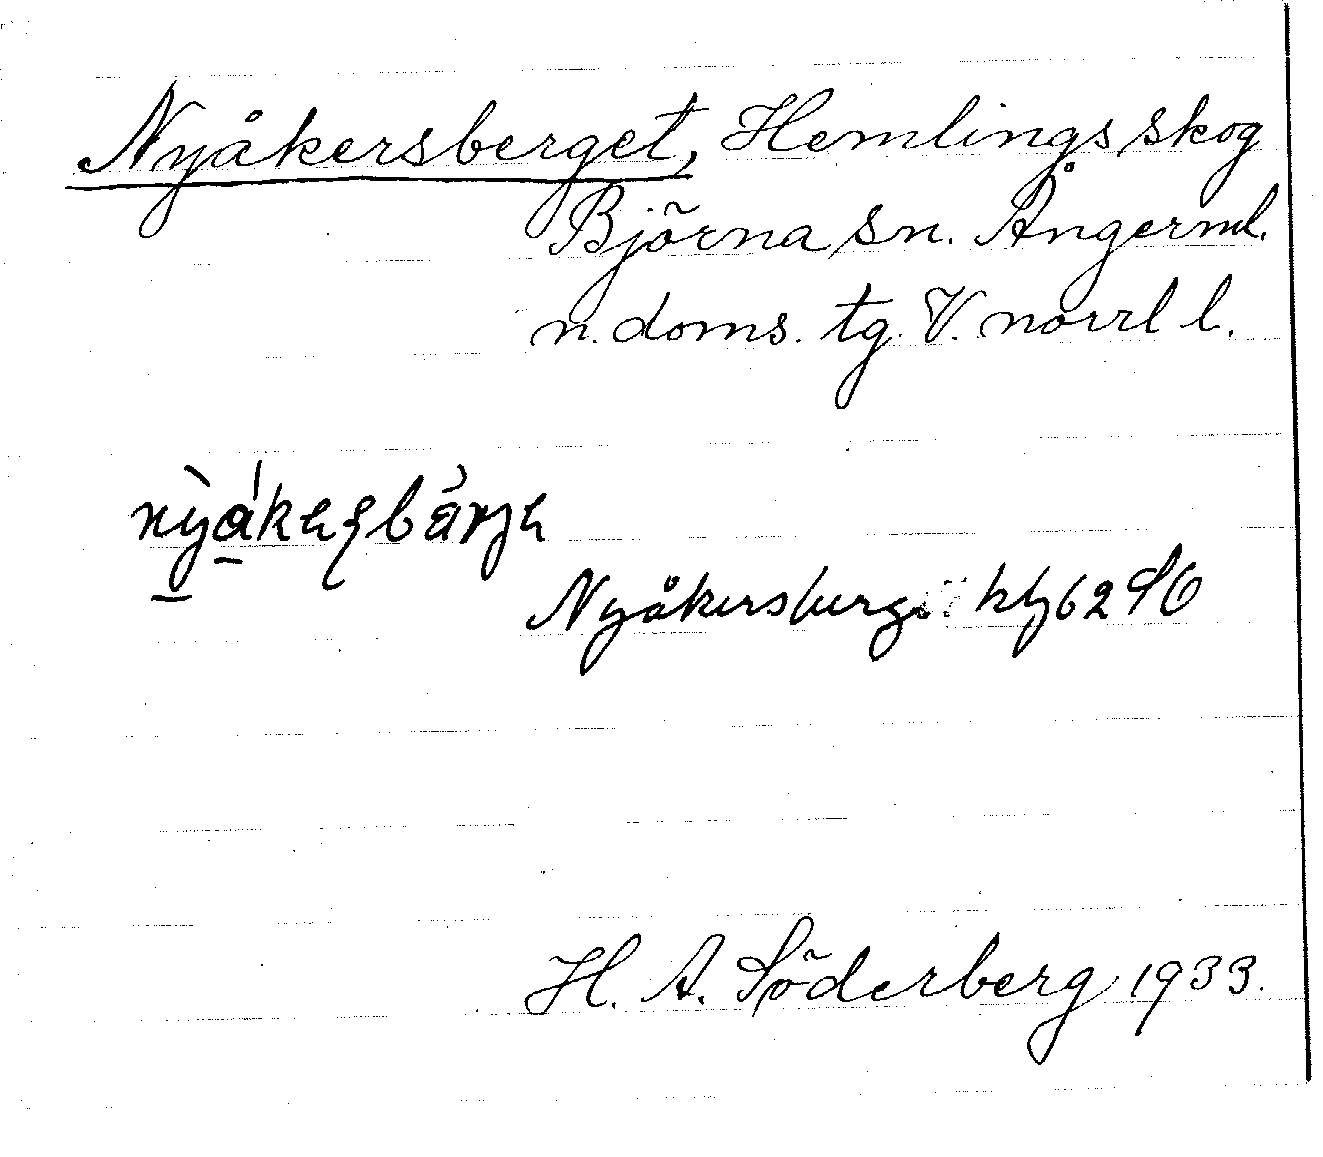 Nyåkersberget, Hemlings skog
Björna sn. Ångerml.
n. doms. tg. V. norrl l.
Nyåkersberg 62 SO
H. A. Söderberg 1933.